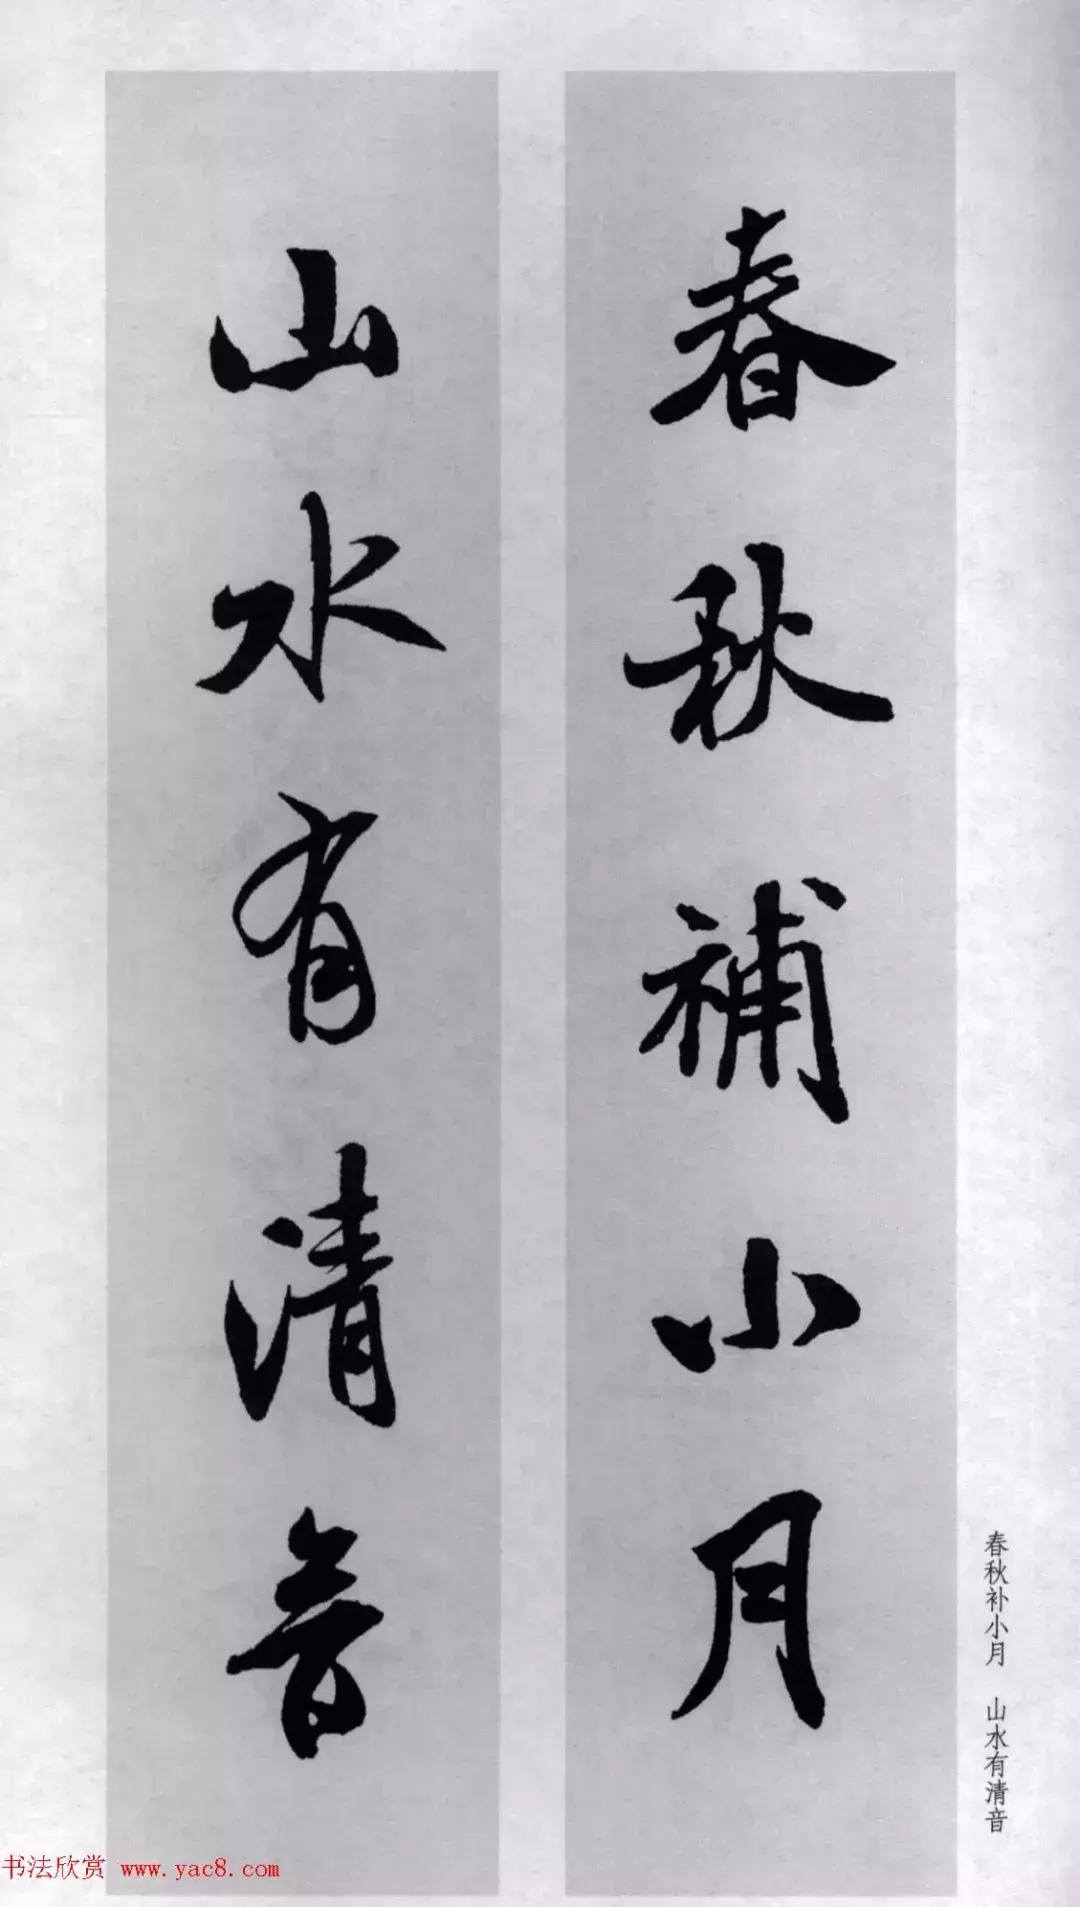 春秋補小月
山水有清音
春秋补小月 山水有清音
书法欣赏 www.yac8.com